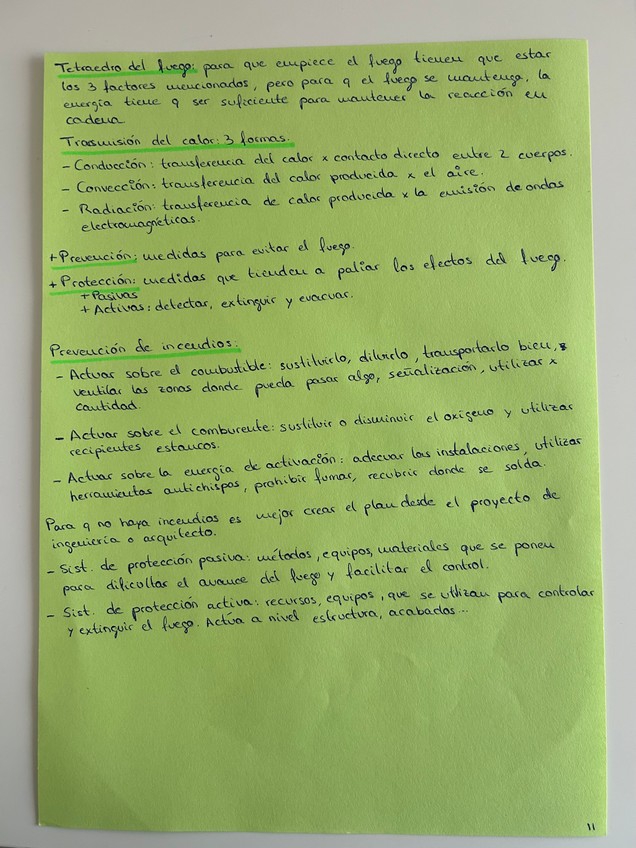 Tetraedro del fuego: para que empiece el fuego tienen que estar
los 3 factores mencionados, pero para q el fuego se mantenga, la
energía tiene q ser suficiente para mantener la reacción en
cadena
Trasmisión del calor: 3 formas.
- Conducción: transferencia del calor x contacto directo entre 2 cuerpos.
- Convección: transferencia del calor producida x el aire.
- Radiación: transferencia de calor producida x la emisión de ondas
electromagnéticas.
+ Prevención: medidas para evitar el fuego.
+ Protección: medidas que tienden a paliar los efectos del fuego.
+ Pasivas
+ Activas: detectar, extinguir y evacuar.
Prevención de incendios:
- Actuar sobre el combustible: sustituirlo, diluirlo, transportarlo bien,
ventilar las zonas donde pueda pasar algo, señalización, utilizar x
cantidad.
- Actuar sobre el comburente: sustituir o disminuir el oxígeno y utilizar
recipientes estancos.
- Actuar sobre la energía de activación: adecuar las instalaciones, utilizar
herramientas antichispas, prohibir fumar, recubrir donde se solda.
Para q no haya incendios es mejor crear el plan desde el proyecto de
ingeniería o arquitecto.
- Sist. de protección pasiva: métodos, equipos, materiales que se ponen
para dificultar el avance del fuego y facilitar el control.
- Sist. de protección activa: recursos, equipos, que se utilizan para controlar
y extinguir el fuego. Actúa a nivel estructura, acabados...
11